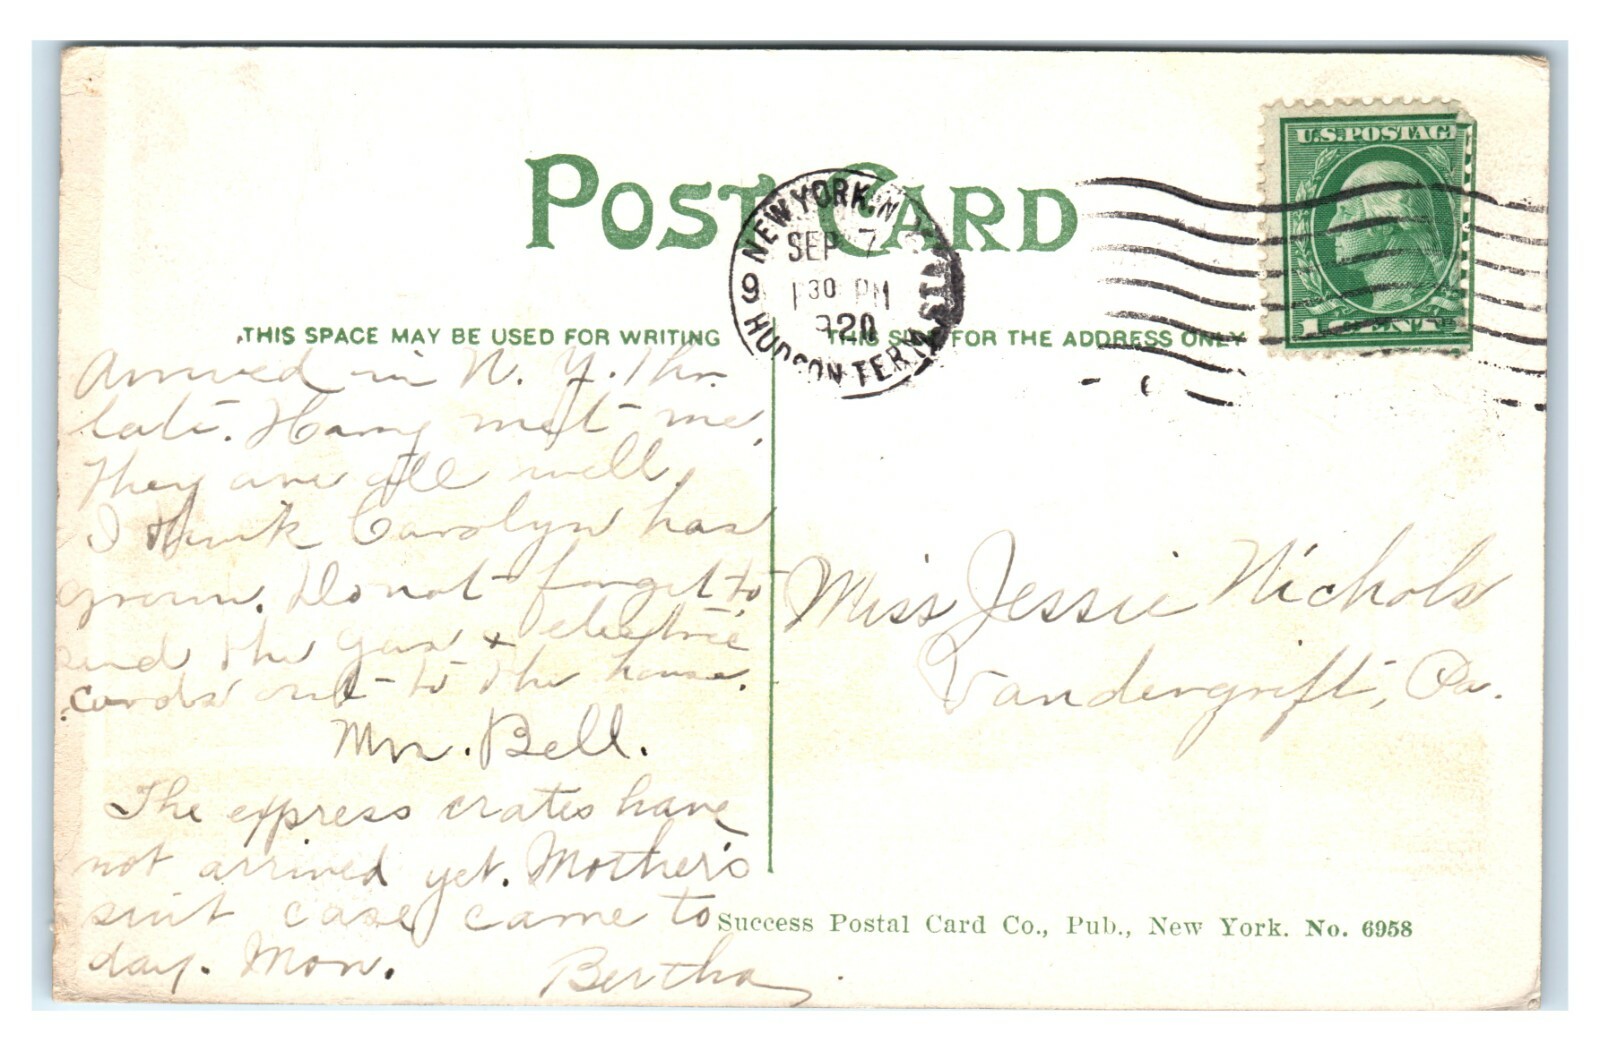 POST CARD
U.S.POSTAG
1 CENT
NEW YORK, N.Y.
SEP 7
1 30 PM
1920
9
HUDSON TERM. STA.
THIS SPACE MAY BE USED FOR WRITING
THIS SIDE FOR THE ADDRESS ONLY
Arrived in N. Y. 1 hr.
late. Harry met me.
They are all well.
I think Carolyn has
grown. Do not forget to
send the gas & electric
cards out to the house.
Mrs. Bell.
The express crates have
not arrived yet. Mother's
suit case came to
day. Mon. Bertha
Miss Jessie Nichols
Vandergrift, Pa.
Success Postal Card Co., Pub., New York. No. 6958